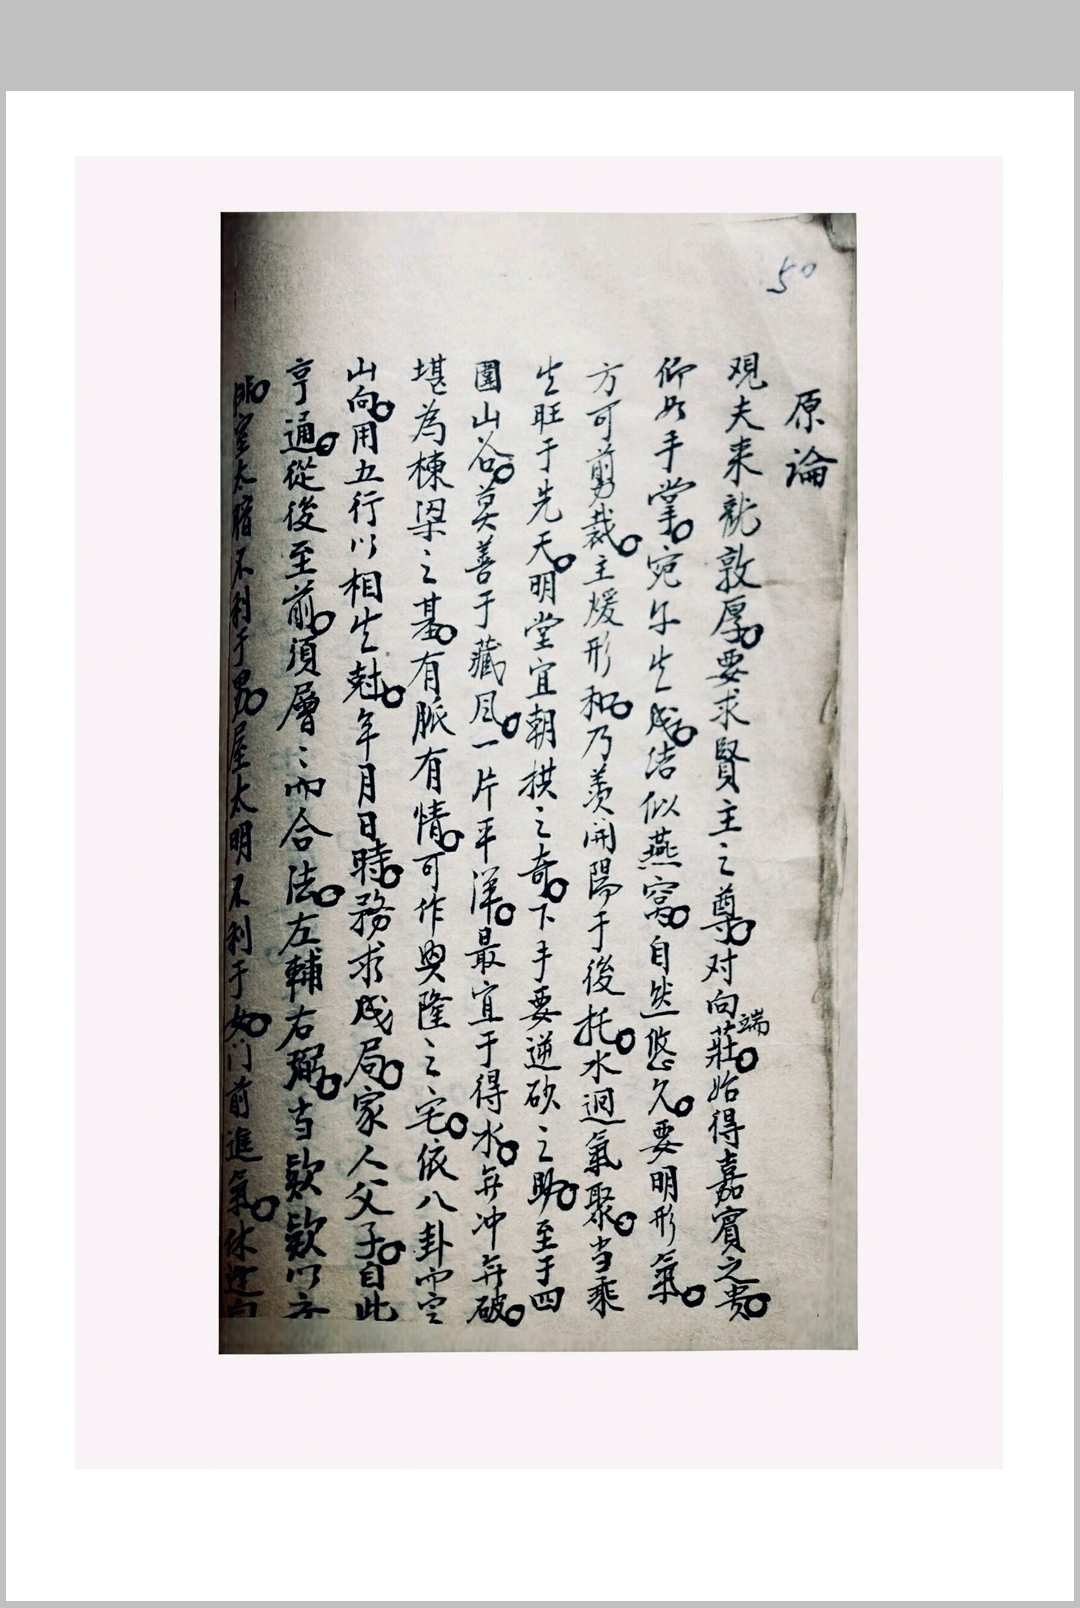 50
原論
观夫来龍敦厚。要求賢主之尊。对向端莊。始得嘉賓之貴。
仰如手掌。宛尔生成。结似燕窩。自然悠久。要明形氣。
方可剪裁。主煖形和。乃羨開陽于後托。水迴氣聚。当乘
生旺于先天。明堂宜朝拱之奇。下手要逆砂之助。至于四
圍山谷。莫善于藏风。一片平洋。最宜于得水。无冲无破。
堪為棟梁之基。有脈有情。可作興隆之宅。依八卦而定
山向。用五行以相生尅。年月日時。務求成局。家人父子。自此
亨通。從後至前。須層々而合法。左輔右弼。当欵欵以
卧室太暗不利于男。屋太明不利于女。门前進氣。休迎